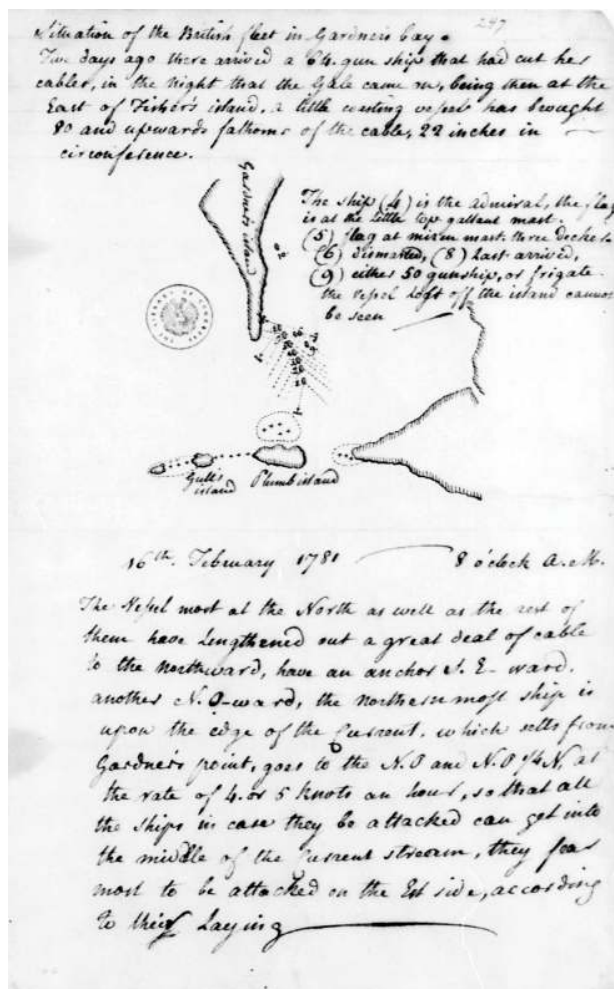 247
Situation of the British fleet in Gardners bay.
Two days ago there arrived a 64 gun ship that had cut her
cables, in the night that the Gale came on, being then at the
East of Fisher's island. a little coasting vessel has brought
80 and upwards fathoms of the cable, 22 inches in
circonference.
Gardner's island
The ship (4) is the admiral, the flag
is at the little top gallant mast.
(5) flag at mizen mast. three decker
(6) dismasted, (8) Last arrived,
(9) either 50 gunship, or frigate.
the vessel Loft off the island cannot
be seen
THE LIBRARY OF CONGRESS
Gull's
island
Plumb island
16th. February 1781 8 o'clock A.M.
The Vessel most at the North as well as the rest of
them have Lengthened out a great deal of cable
to the northward, have an anchor S. E- ward.
another N.O-ward, the northernmost ship is
upon the edge of the Current, which setts from
Gardner's point, goes to the N.O and N.O 1/4 N, at
the rate of 4. or 5 Knots an hour, so that all
the ships in case they be attacked can get into
the middle of the Current stream, they fear
most to be attacked on the Est side, according
to their Laying